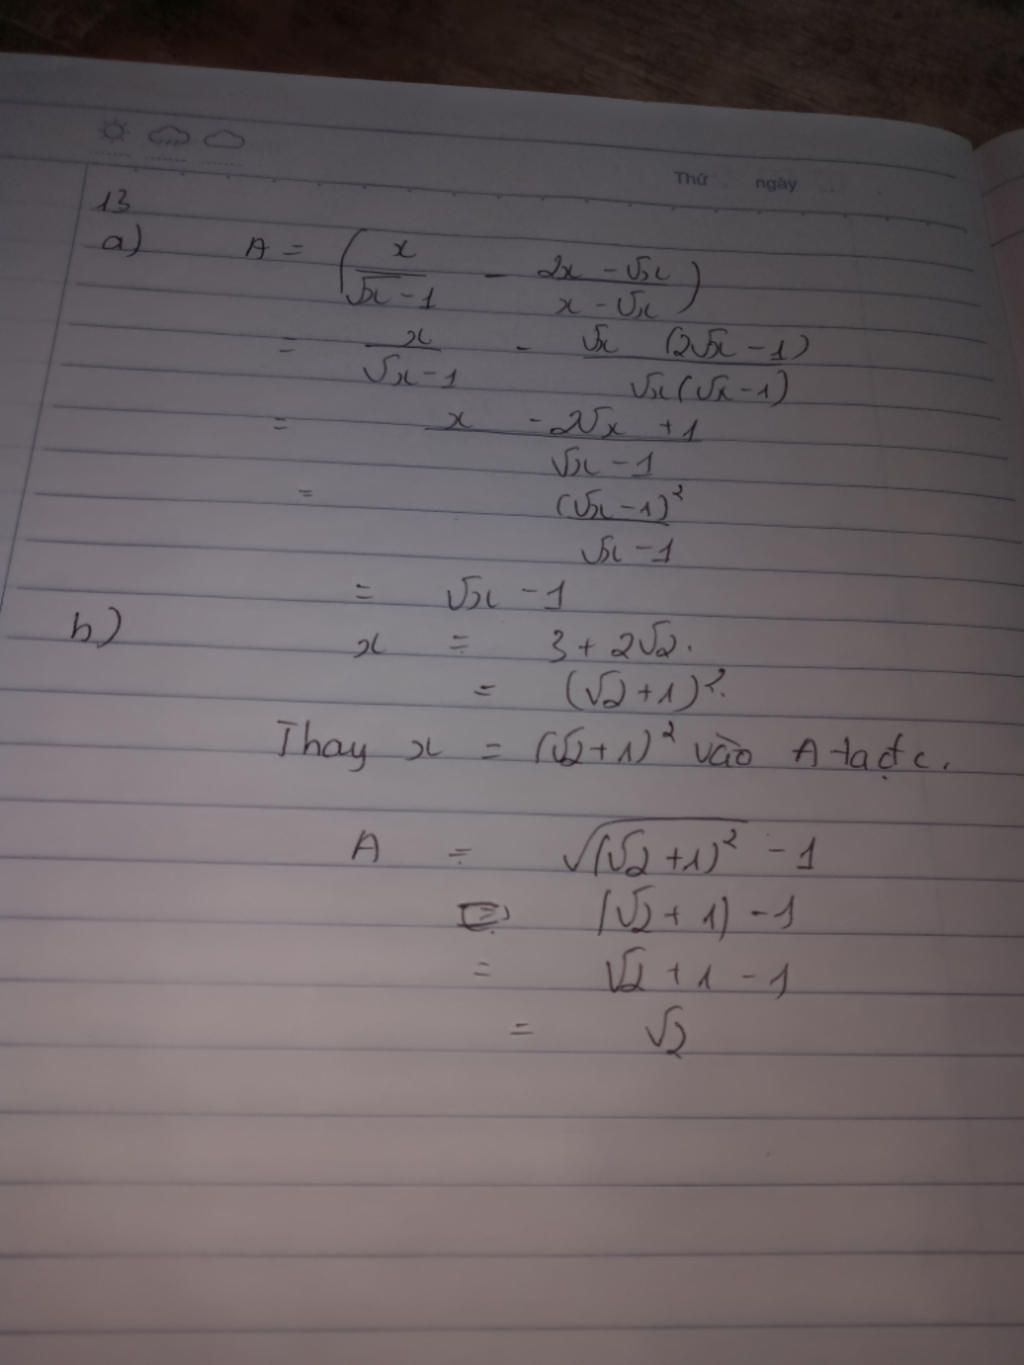 Thứ ngày
13
a) A = (x/(√x - 1) - (2x - √x)/(x - √x))
= x/(√x - 1) - √x (2√x - 1)/(√x(√x - 1))
= (x - 2√x + 1)/(√x - 1)
= (√x - 1)²/(√x - 1)
= √x - 1
b) x = 3 + 2√2.
= (√2 + 1)².
Thay x = (√2 + 1)² vào A ta đc.
A = √((√2 + 1)²) - 1
|√2 + 1| - 1
= √2 + 1 - 1
= √2